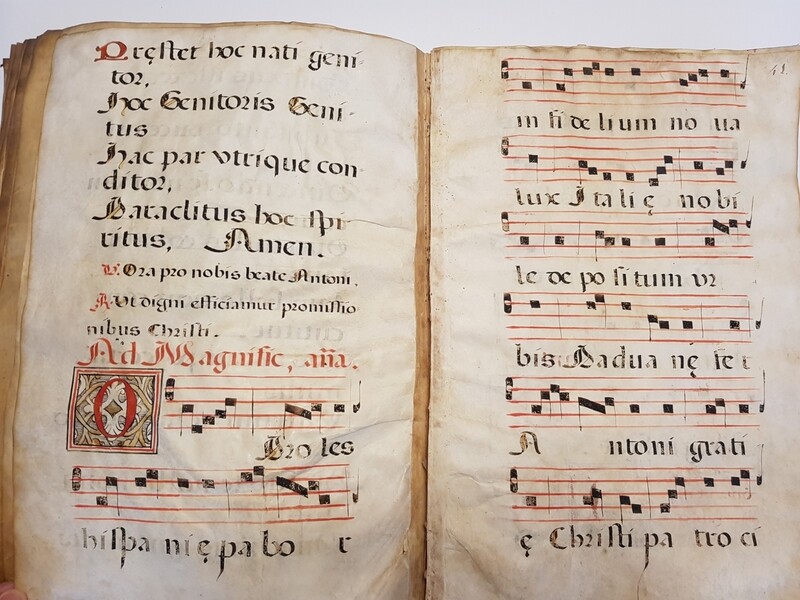 Pręstet hoc nati geni-
tor,
Hoc Genitoris Geni-
tus
Hac par vtrique con-
ditor,
Paraclitus hoc spi-
ritus, Amen.
V. Ora pro nobis beate Antoni.
R. Vt digni efficiamur promissio
nibus Christi.
Ad Magnific, aña.
O Pro les
hispa ni ę pa bo r
in fi de lium no ua
lux Ita li ę no bi
le de po si tum vr
bis Padua nę fe r
A ntoni grati
ę Christi pa tro ci